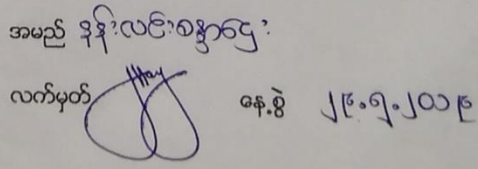 အမည် နန်းလင်းစန္ဒာဌေး
လက်မှတ် နေ့စွဲ ၂၉.၅.၂၀၁၉